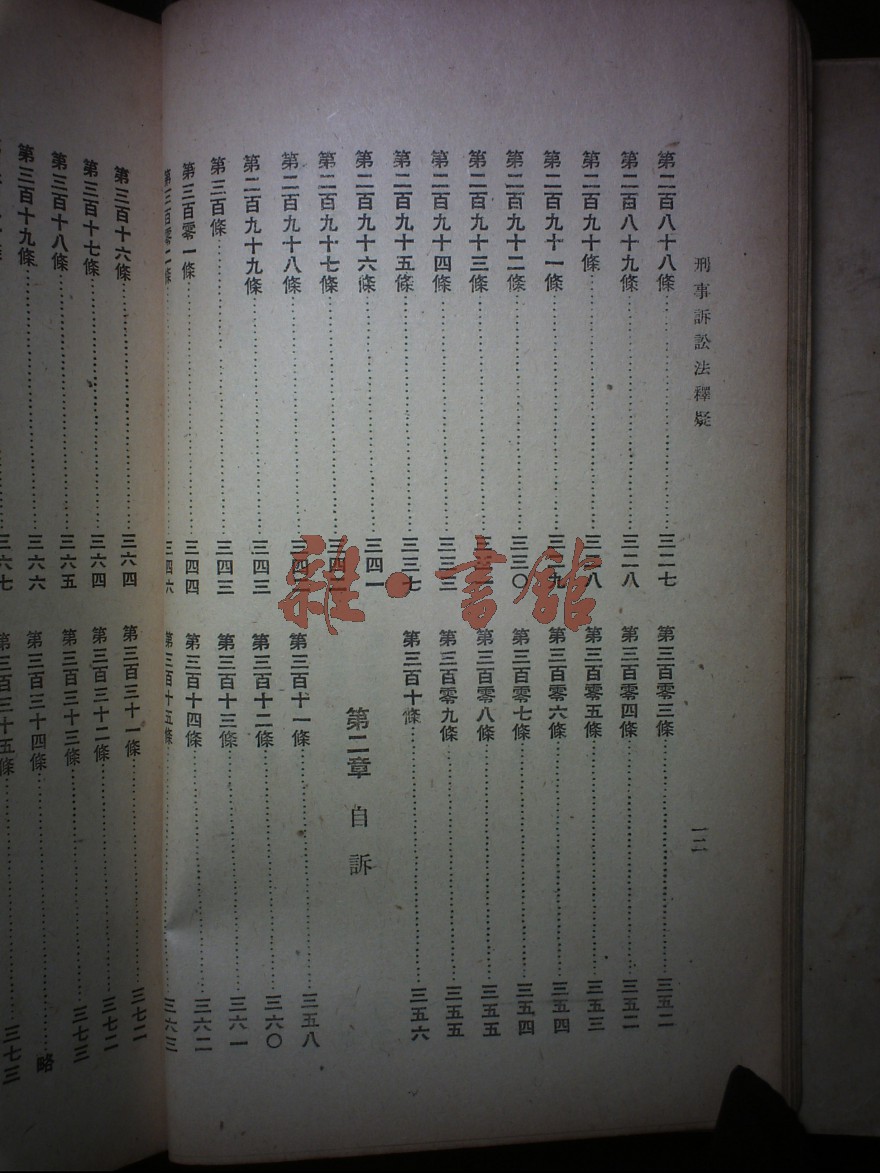 刑事訴訟法釋疑 一二
第二百八十八條……三二七
第二百八十九條……三二八
第二百九十條……三二八
第二百九十一條……三二九
第二百九十二條……三三〇
第二百九十三條……
第二百九十四條……三三三
第二百九十五條……三三七
第二百九十六條……三四一
第二百九十七條……
第二百九十八條……
第二百九十九條……三四三
第三百條……三四三
第三百零一條……三四四
第三百零二條……三四六
第三百零三條……三五二
第三百零四條……三五二
第三百零五條……三五三
第三百零六條……三五四
第三百零七條……三五四
第三百零八條……三五五
第三百零九條……三五五
第三百十條……三五六
第二章 自訴
第三百十一條……三五八
第三百十二條……三六〇
第三百十三條……三六一
第三百十四條……三六二
第三百十五條……三六三
第三百十六條……三六四
第三百十七條……三六四
第三百十八條……三六五
第三百十九條……三六六
三六七
第三百三十一條……三七二
第三百三十二條……三七二
第三百三十三條……三七三
第三百三十四條……略
第三百三十五條……三七三
雜·書館